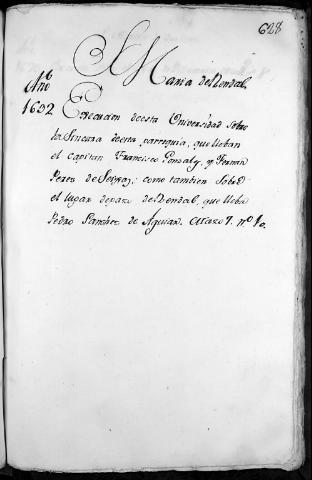 628
S. Maria de Bendal.
Año
1692 Execucion de esta Universidad sobre
la Sincura de esta parroquia, que lleban
el Capitan Francisco Gonsalz, y Fermin
Perez de Seyxas; como tambien sobre
el lugar de pazo de Bendal, que lleba
Pedro Sanchez de Aguiar. Atazo 7. nº 10.